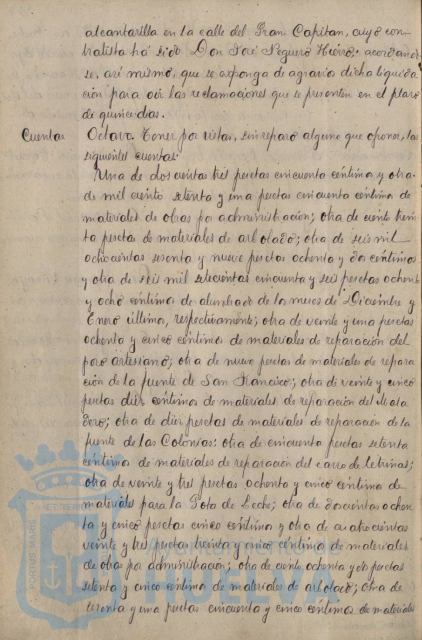 alcantarilla en la calle del Gran Capitan, cuyo con-
tratista há sido Don José Seguero Hierro; acordando-
se, así mismo, que se exponga de agravio dicha liquida-
ción para oir las reclamaciones que se presenten en el plazo
de quince dias.
Cuentas Octavo. Tener por vistas, sin reparo alguno que oponer, las
siguientes cuentas:
Una de doscientas tres pesetas cincuenta céntimos y otra
de mil ciento setenta y una pesetas cincuenta céntimos de
materiales de obras por administración; otra de ciento trein
ta pesetas de materiales de arbolado; otra de seis mil
ochocientas sesenta y nueve pesetas ochenta y dos céntimos
y otra de seis mil setecientas cincuenta y seis pesetas ochenta
y ocho céntimos de alumbrado de los meses de Diciembre y
Enero último, respectivamente; otra de veinte y una pesetas
ochenta y cinco céntimos de materiales de reparación del
pozo artesiano; otra de nueve pesetas de materiales de repara
ción de la fuente de San Francisco; otra de veinte y cinco
pesetas diez céntimos de materiales de reparación del Mata
dero; otra de diez pesetas de materiales de reparación de la
fuente de las Colonias; otra de cincuenta pesetas setenta
céntimos de materiales de reparación del carro de letrinas;
otra de veinte y tres pesetas ochenta y cinco céntimos de
materiales para la Gota de Leche; otra de doscientas ochen
ta y cinco pesetas cinco céntimos y otra de cuatrocientas
veinte y tres pesetas treinta y cinco céntimos de materiales
de obras por administración; otra de ciento ochenta y pesetas
setenta y cinco céntimos de materiales de arbolado; otra de
sesenta y una pesetas cincuenta y cinco céntimos de materiales
PORTUS MARIS ET TERRAE
Ayuntamiento de
HUELVA